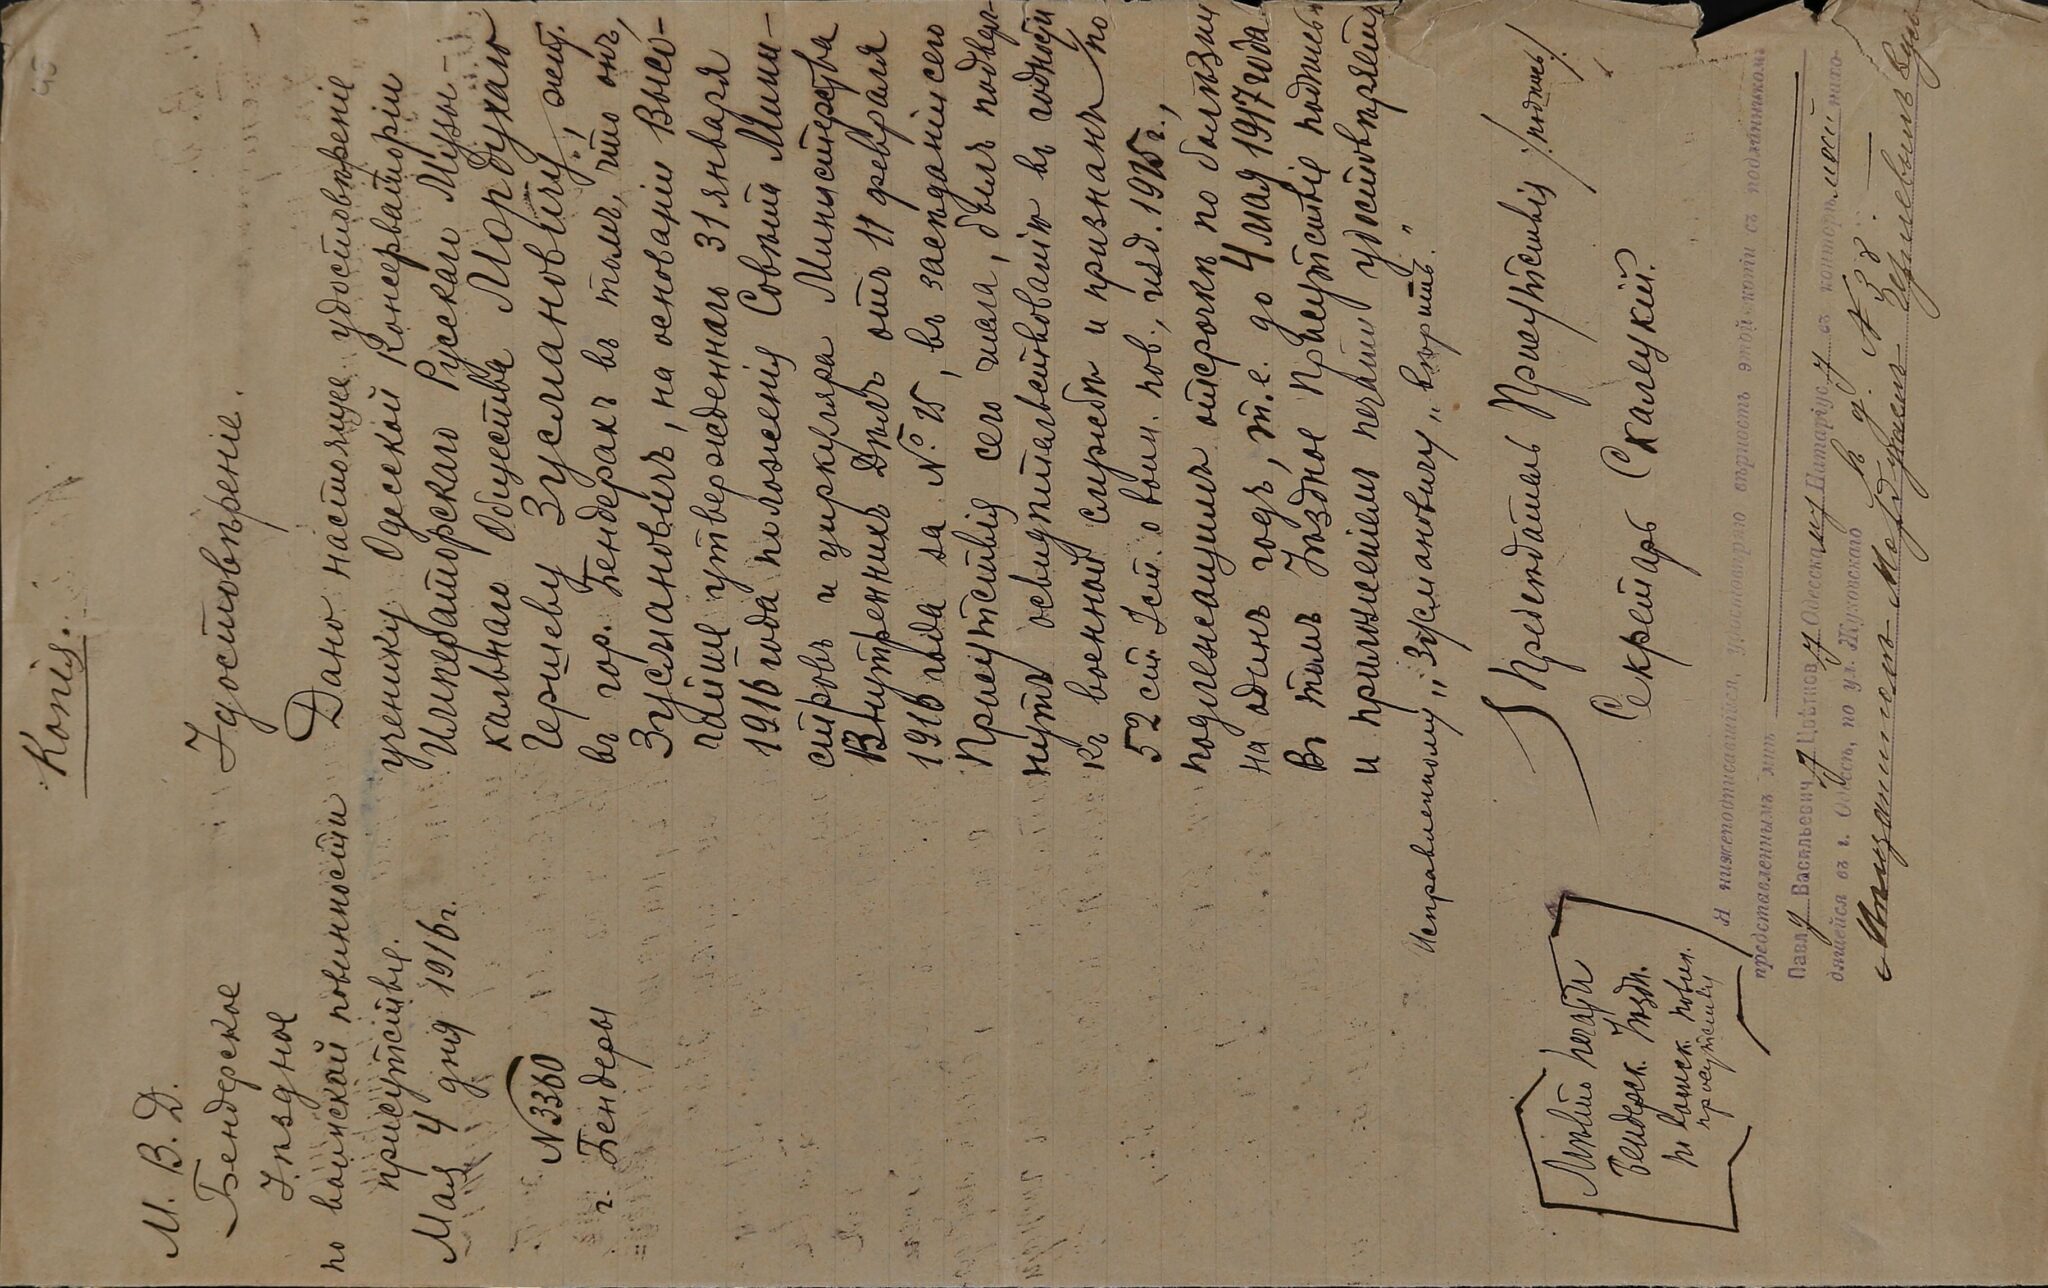 Копія.
М. В. Д.
Бендерское
Уѣздное
по воинской повинности
присутствіе.
Мая 4 дня 1916 г.
№ 3360
г. Бендеры
Удостовѣреніе.
Дано настоящее удостовѣреніе
ученику Одесской Консерваторіи
Императорскаго Русскаго Музы-
кальнаго Общества Мордухаю
Гершеву Зусмановичу, жит.
въ гор. Бендерахъ въ томъ, что онъ,
Зусмановичъ, на основаніи Высо-
чайше утвержденнаго 31 января
1916 года положенія Совѣта Мини-
стровъ и циркуляра Министерства
Внутреннихъ Дѣлъ отъ 11 февраля
1916 года за № 25, въ засѣданіи сего
Присутствія сего мая, былъ подверг-
нутъ освидѣтельствованію въ годности
къ военной службѣ и признанъ по
52 ст. Уст. о воин. пов., изд. 1915 г.,
подлежащимъ отсрочкѣ по болѣзни
на одинъ годъ, т. е. до 4 мая 1917 года.
Въ томъ Уѣздное Присутствіе подписью
и приложеніемъ печати удостовѣряетъ
Исправленному „Зусмановичу„ вѣрить."
Предсѣдатель Присутствія /подпись/.
Секретарь Скалецкій.
Мѣсто печати
Бендерск. Уѣздн.
по воинск. повин.
присутствія
Я нижеподписавшійся, удостовѣряю вѣрность этой копіи съ подлинникомъ
представленнымъ мнѣ
Павлу Васильевичу Цвѣткову Одесскому Нотаріусу въ конторѣ моей нахо-
дящейся въ г. Одессѣ, по ул. Жуковскаго въ д. № 38.
Мордухаемъ Зусмановичемъ